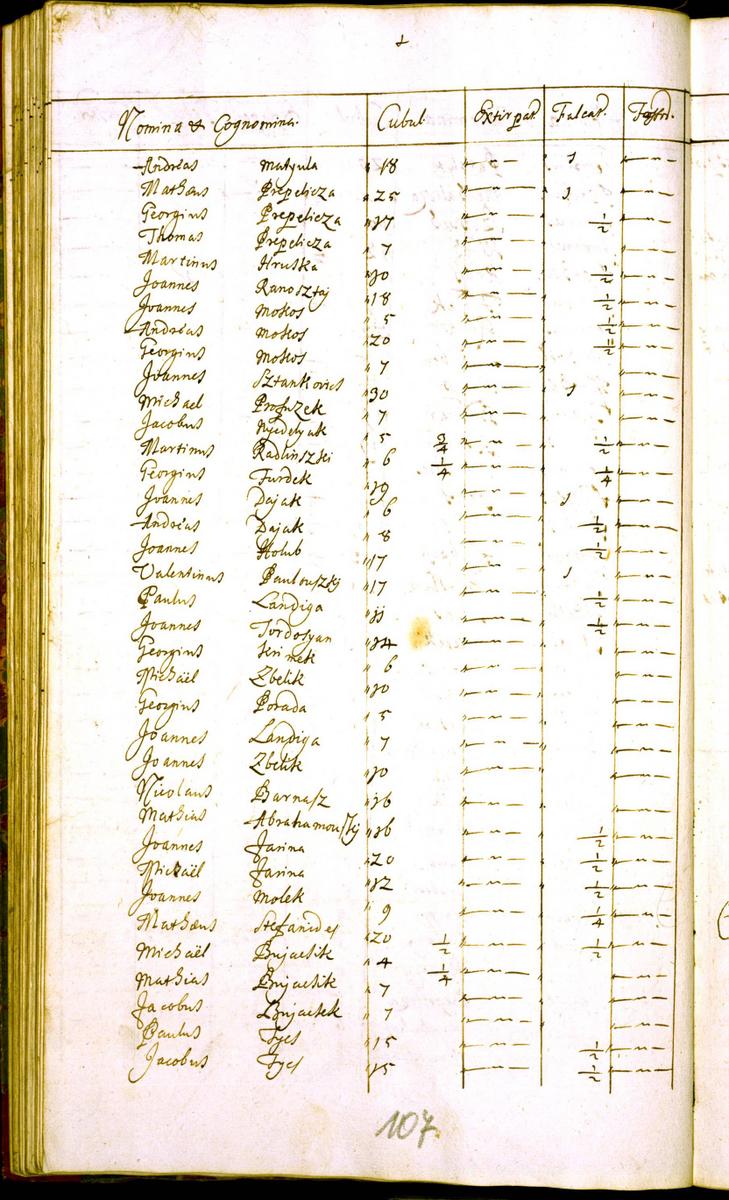 Nomina & Cognomina. Cubul Extirpat. Falcat.
Andreas Matyula 18 1
Mathæus Prepelicza 25 1
Georgius Prepelicza 17 1/2
Thomas Prepelicza 7
Martinus Hruska 10 1/2
Joannes Ranosztaj 18 1/2
Joannes Mokos 5 1/2
Andreas Mokos 20 1/2
Georgius Mokos 7
Joannes Sztankovics 30 1
Michael 7
Jacobus Nyedelyak 5 3/4 1/2
Martinus Radlinszki 6 1/4 1/4
Georgius Furdek 19 1
Joannes Dajak 6 1/2
Andreas Dajak 8 1/2
Joannes Holub 17
Valentinus Paulouszkÿ 17 1
Paulus Landiga 11 1/2
Joannes Tordosyan 14 1/2
Georgius 6
Michaël Zbelik 10
Georgius Porada 5
Joannes Landiga 7
Joannes Zbelik 10
Nicolaus Barnasz 16
Mathias Abrahamouszkÿ 16 1/2
Joannes Jarina 20 1/2
Michaël Jarina 12 1/2
Joannes Molek 9 1/4
Mathæus Stefanides 20 1/2 1/2
Michaël Bujacsik 4 1/4
Mathias Bujacsik 7
Jacobus Bujacsek 7
Paulus 15 1/2
Jacobus 15 1/2
107